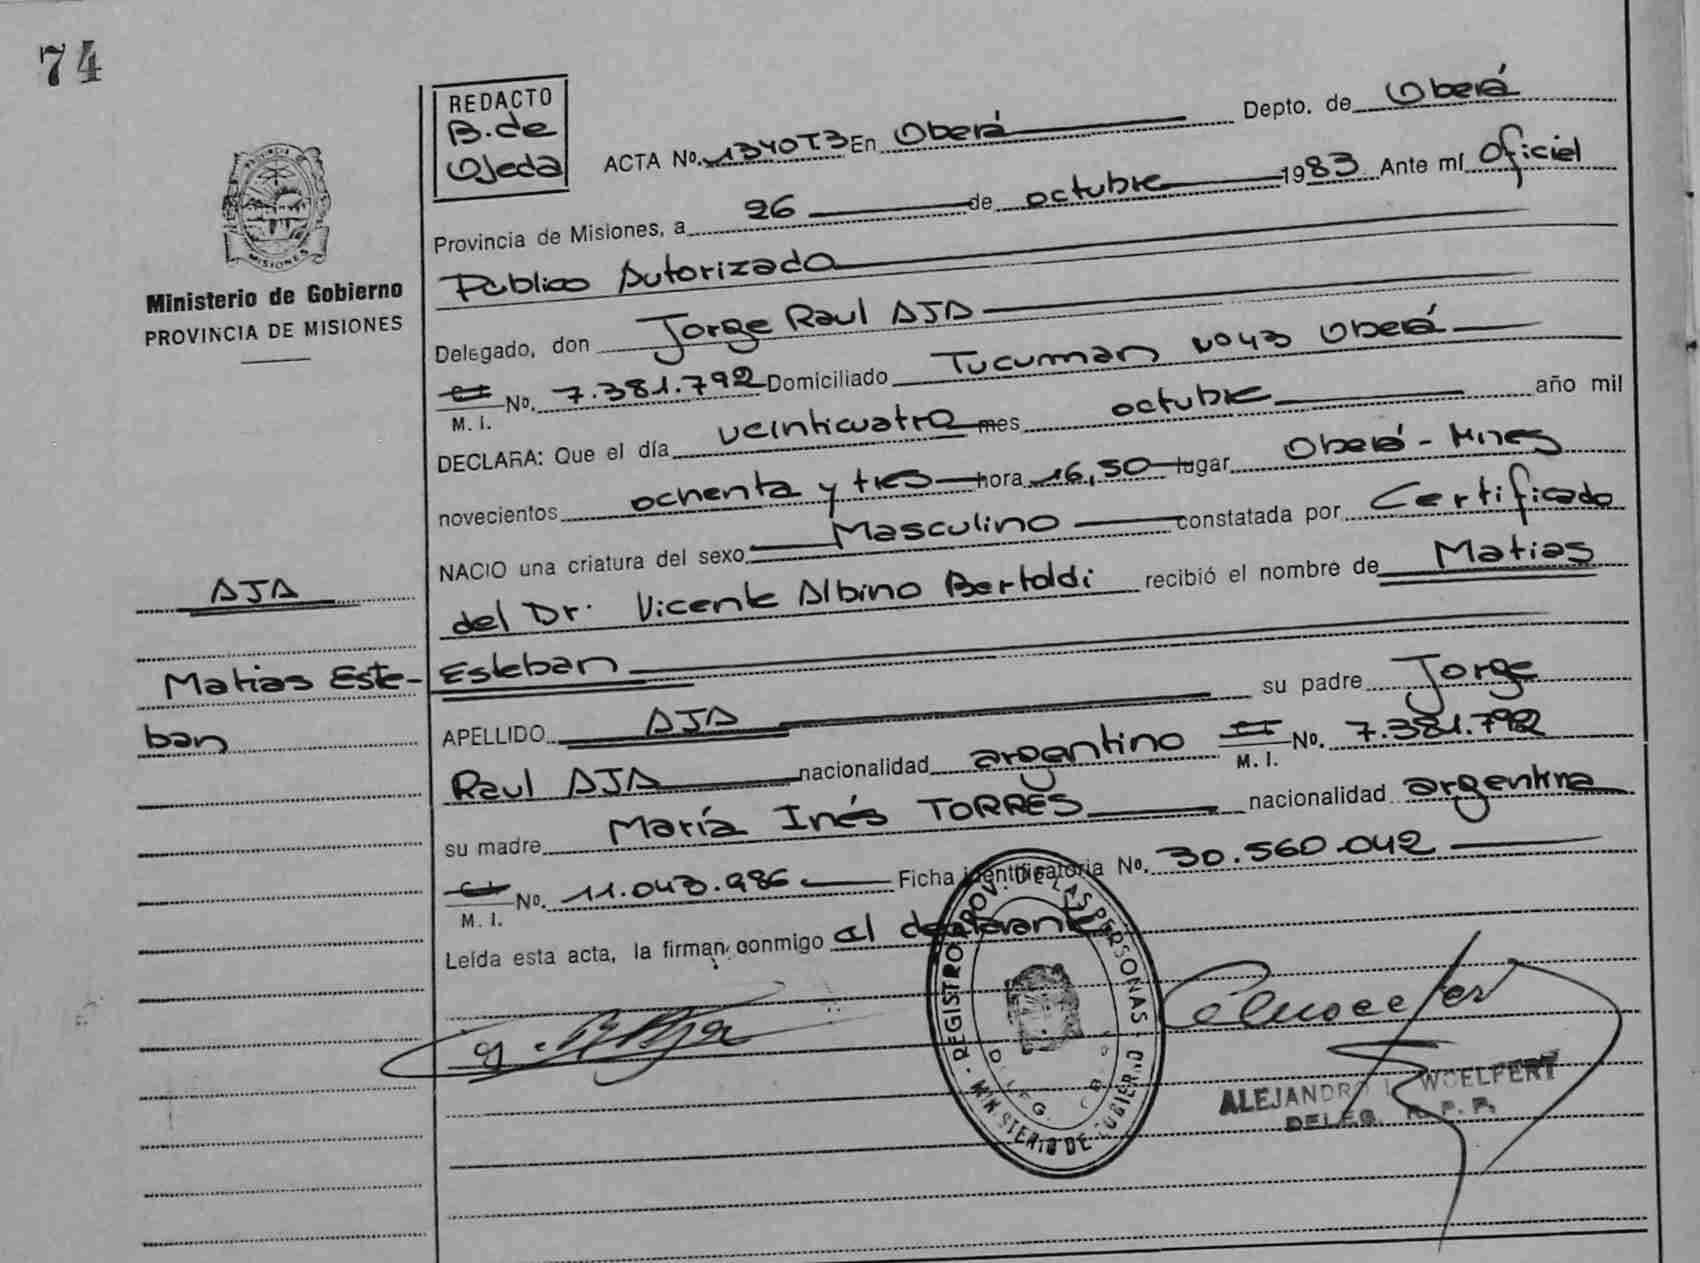 74
REDACTO
B. de
Ojeda
ACTA No. 1340T3 En Oberá Depto. de Oberá
Provincia de Misiones, a 26 de octubre 1983 Ante mí Oficial
Público Autorizado
Delegado, don Jorge Raul AJA
M. I. No. 7.381.792 Domiciliado Tucuman Nº43 Oberá
DECLARA: Que el día veinticuatro mes octubre año mil
novecientos ochenta y tres hora 16,50 lugar Oberá - Mnes
NACIO una criatura del sexo Masculino constatada por Certificado
del Dr. Vicente Albino Bertoldi recibió el nombre de Matias
Esteban
APELLIDO AJA su padre Jorge
Raul AJA nacionalidad argentino M. I. No. 7.381.792
su madre María Inés TORRES nacionalidad argentina
M. I. No. 11.043.986 Ficha identificatoria No. 30.560.042
Leída esta acta, la firman conmigo el declarante
MISIONES
Ministerio de Gobierno
PROVINCIA DE MISIONES
AJA
Matias Este-
ban
REGISTRO PROV. DE LAS PERSONAS
MINISTERIO DE GOBIERNO
ALEJANDRO WOELFERT
DELEG. R. P. P.